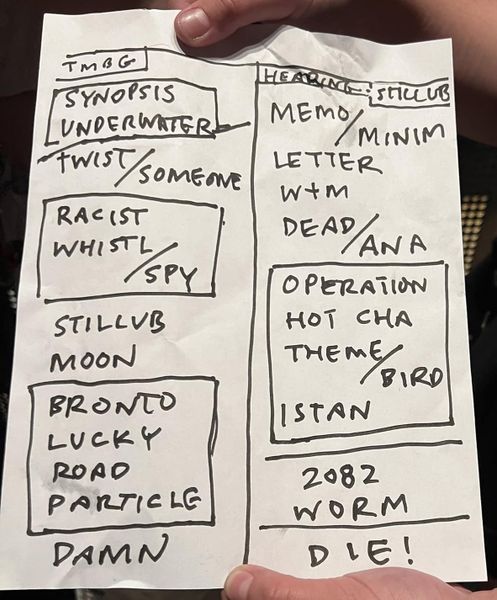 TMBG
SYNOPSIS
UNDERWATER
TWIST/SOMEONE
RACIST
WHISTL
/SPY
STILLUB
MOON
BRONTO
LUCKY
ROAD
PARTICLE
DAMN
HEARING STILLUB
MEMO
/MINIM
LETTER
W+M
DEAD
/ANA
OPERATION
HOT CHA
THEME
/BIRD
ISTAN
2082
WORM
DIE!